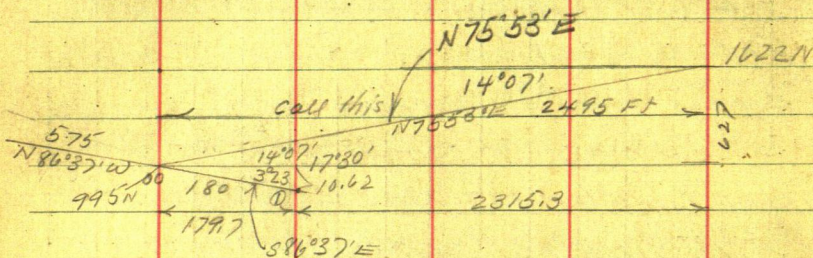 N75°53'E
1622N
14°07'
call this
N75°53'E 2495 Ft
627
575
N86°37'W
14°07' 17°30'
00
180 3°23 10.62
995N
①
179.7
2315.3
S86°37'E